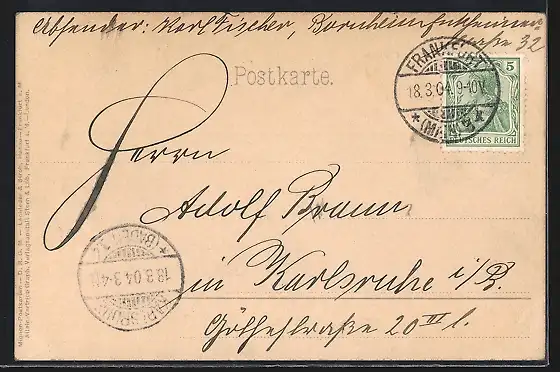 Absender: Karl Fischer, Bornheim
straße 32
Postkarte.
FRANKFURT
18.3.04. 9-10V.
* (MAIN) *
5
DEUTSCHES REICH
Herrn
Adolf Braun
in Karlsruhe i/B.
Göthestraße 20 III l.
KARLSRUHE
18.3.04. 3-4N
* (BADEN)